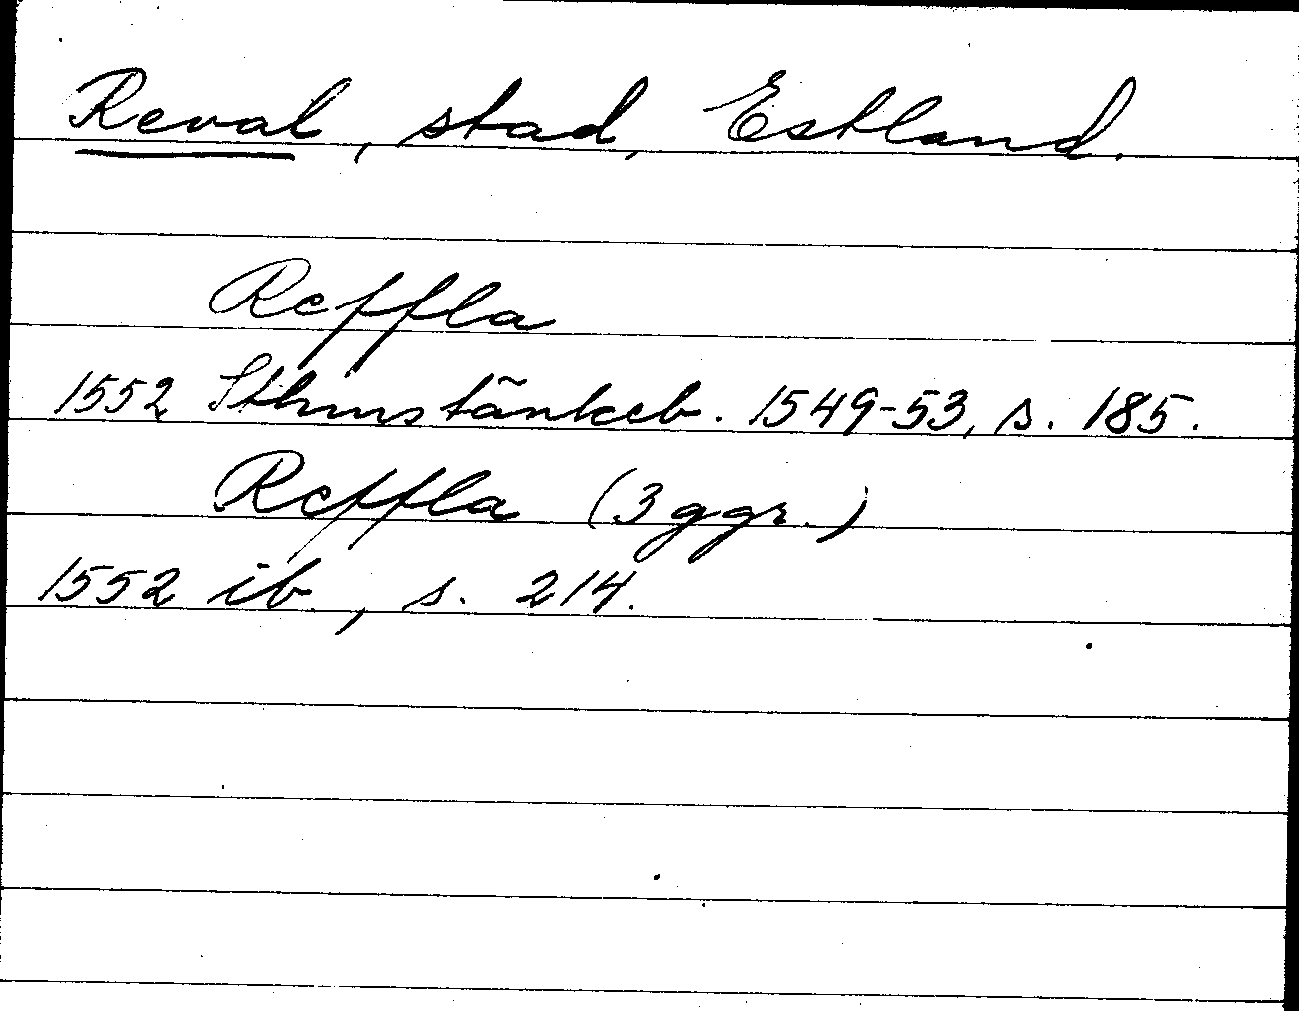 Reval, stad, Estland.
Reffla
1552 Sthmstänkeb. 1549-53, s. 185.
Reffla (3 ggr.)
1552 ib., s. 214.